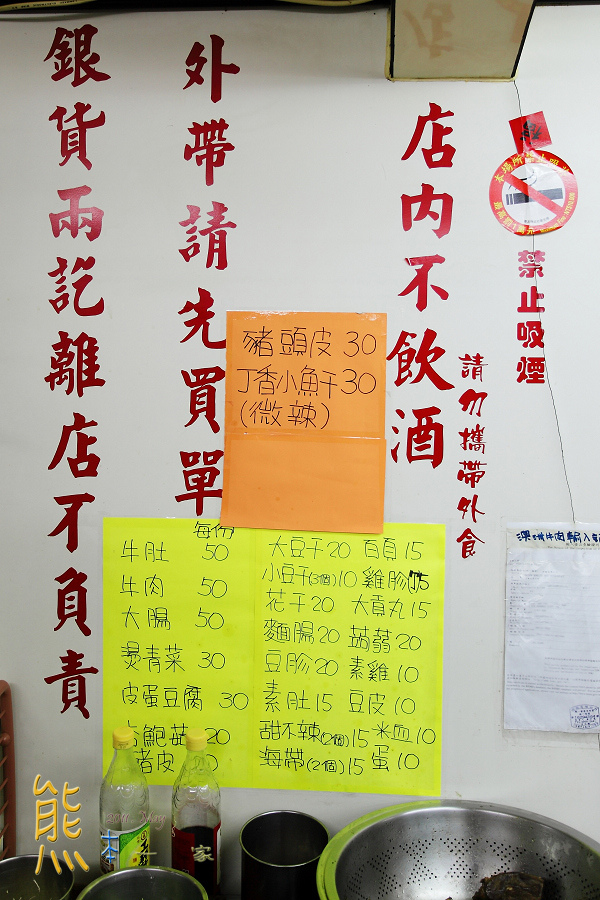 銀貨兩訖離店不負責
外帶請先買單
店內不飲酒
請勿攜帶外食
禁止吸煙
豬頭皮 30
丁香小魚干 30
(微辣)
每份
牛肚 50
牛肉 50
大腸 50
燙青菜 30
皮蛋豆腐 30
鮑菇 20
皮
大豆干 20 百頁 15
小豆干(3個) 10 雞胗 15
花干 20 大貢丸 15
麵腸 20 蒟蒻 20
豆胗 20 素雞 10
素肚 15 豆皮 10
甜不辣(2個) 15 米血 10
海帶(2個) 15 蛋 10
家
熊